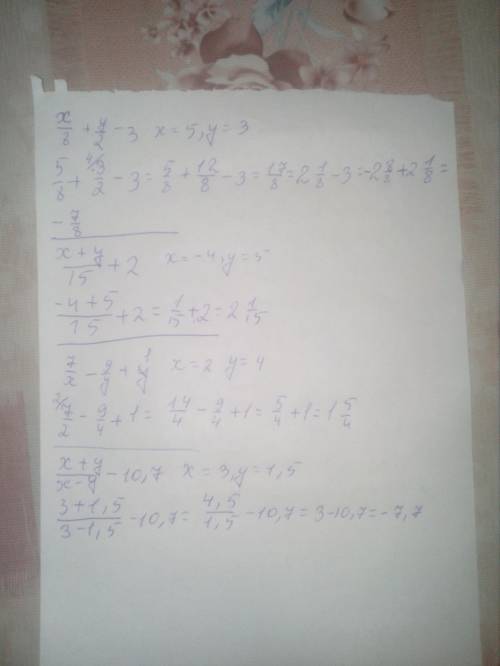 x/8 + y/2 - 3 x = 5, y = 3
5/8 + 4/3/2 - 3 = 5/8 + 12/8 - 3 = 17/8 = 2 1/8 - 3 = -2 8/8 + 2 1/8 =
- 7/8
x + y/15 + 2 x = -4, y = 5
-4 + 5/15 + 2 = 1/15 + 2 = 2 1/15
7/x - 9/y + 1 x = 2 y = 4
2/7/2 - 9/4 + 1 = 14/4 - 9/4 + 1 = 5/4 + 1 = 1 5/4
x + y/x - y - 10,7 x = 3, y = 1,5
3 + 1,5/3 - 1,5 - 10,7 = 4,5/1,5 - 10,7 = 3 - 10,7 = -7,7